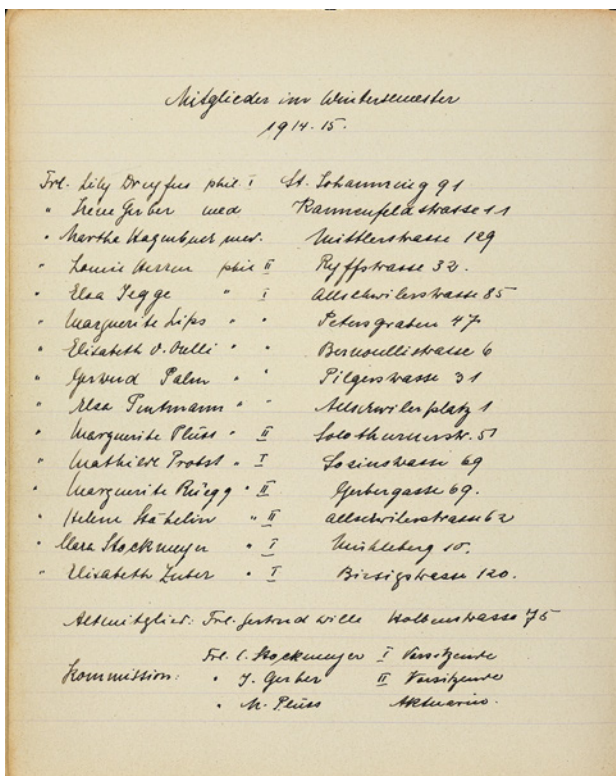 Mitglieder im Wintersemester
1914-15.
Frl. Lily Dreyfus phil. I St. Johannring 91
" Irene Gerber med Kannenfeldstrasse 11
" Martha Hagenbuch med. Mittlerstrasse 129
" Louise Herren phil II Ryffstrasse 32.
" Elsa Jegge " I Allschwilerstrasse 85
" Marguerite Lips " " Petersgraben 47
" Elisabeth v. Orelli " " Bernoullistrasse 6
" Gertrud Palm " " Pilgerstrasse 31
" Elsa " " Allschwilerplatz 1
" Marguerite Plüss " II Solothurnerstr. 51
" Mathilde Probst " I Socinstrasse 69
" Marguerite Rüegg " II Gerbergasse 69.
" Helene Stähelin " II Allschwilerstrasse 62
" Clara Stockmeyer " I Mühleberg 10.
" Elisabeth Zuber " I Birsigstrasse 120.
Altmitglied: Frl. Gertrud Wille Holbeinstrasse 75
Frl. C. Stockmeyer I Vorsitzende
Kommission: " I. Gerber II Vorsitzende
" M. Plüss Aktuarin.